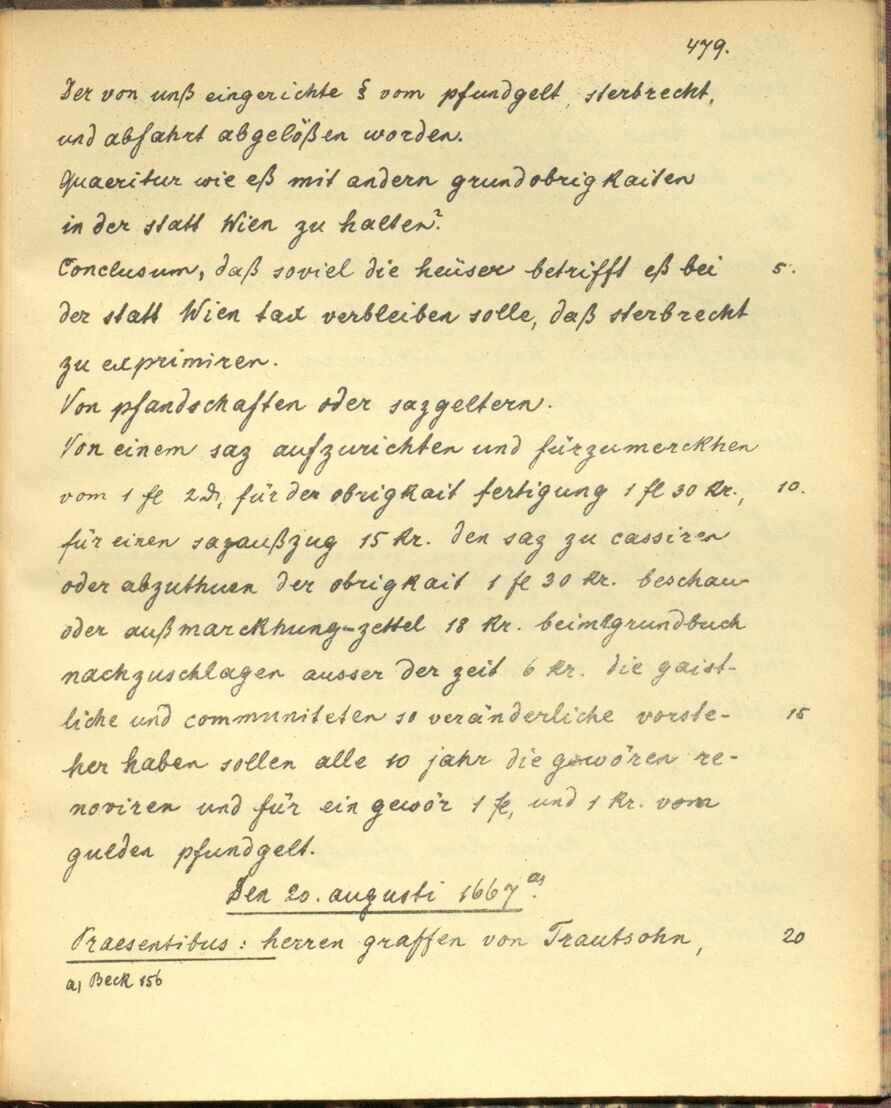 479.
Der von unß eingerichte § vom pfundgelt, sterbrecht,
und abfahrt abgelößen worden.
Quaeritur wie eß mit andern grundobrigkaiten
in der statt Wien zu halten?
Conclusum, daß soviel die heüser betrifft eß bei 5.
der statt Wien tax verbleiben solle, daß sterbrecht
zu exprimiren.
Von pfandschaften oder sazgeltern.
Von einem saz aufzurichten und fürzumerckhen
vom 1 fl 2 ₰, für der obrigkait fertigung 1 fl 30 kr., 10.
für einen sazaußzug 15 kr. den saz zu cassiren
oder abzuthuen der obrigkait 1 fl 30 kr. beschau-
oder außmarckhung-zettel 18 kr. beim grundbuch
nachzuschlagen ausser der zeit 6 kr. die gaist-
liche und communiteten so veränderliche vorste- 15
her haben sollen alle 10 jahr die gewören re-
noviren und für ein gewör 1 fl, und 1 kr. vom
gulden pfundgelt.
Den 20. augusti 1667 a).
Praesentibus: herren graffen von Trautsohn, 20
a) Beck 156